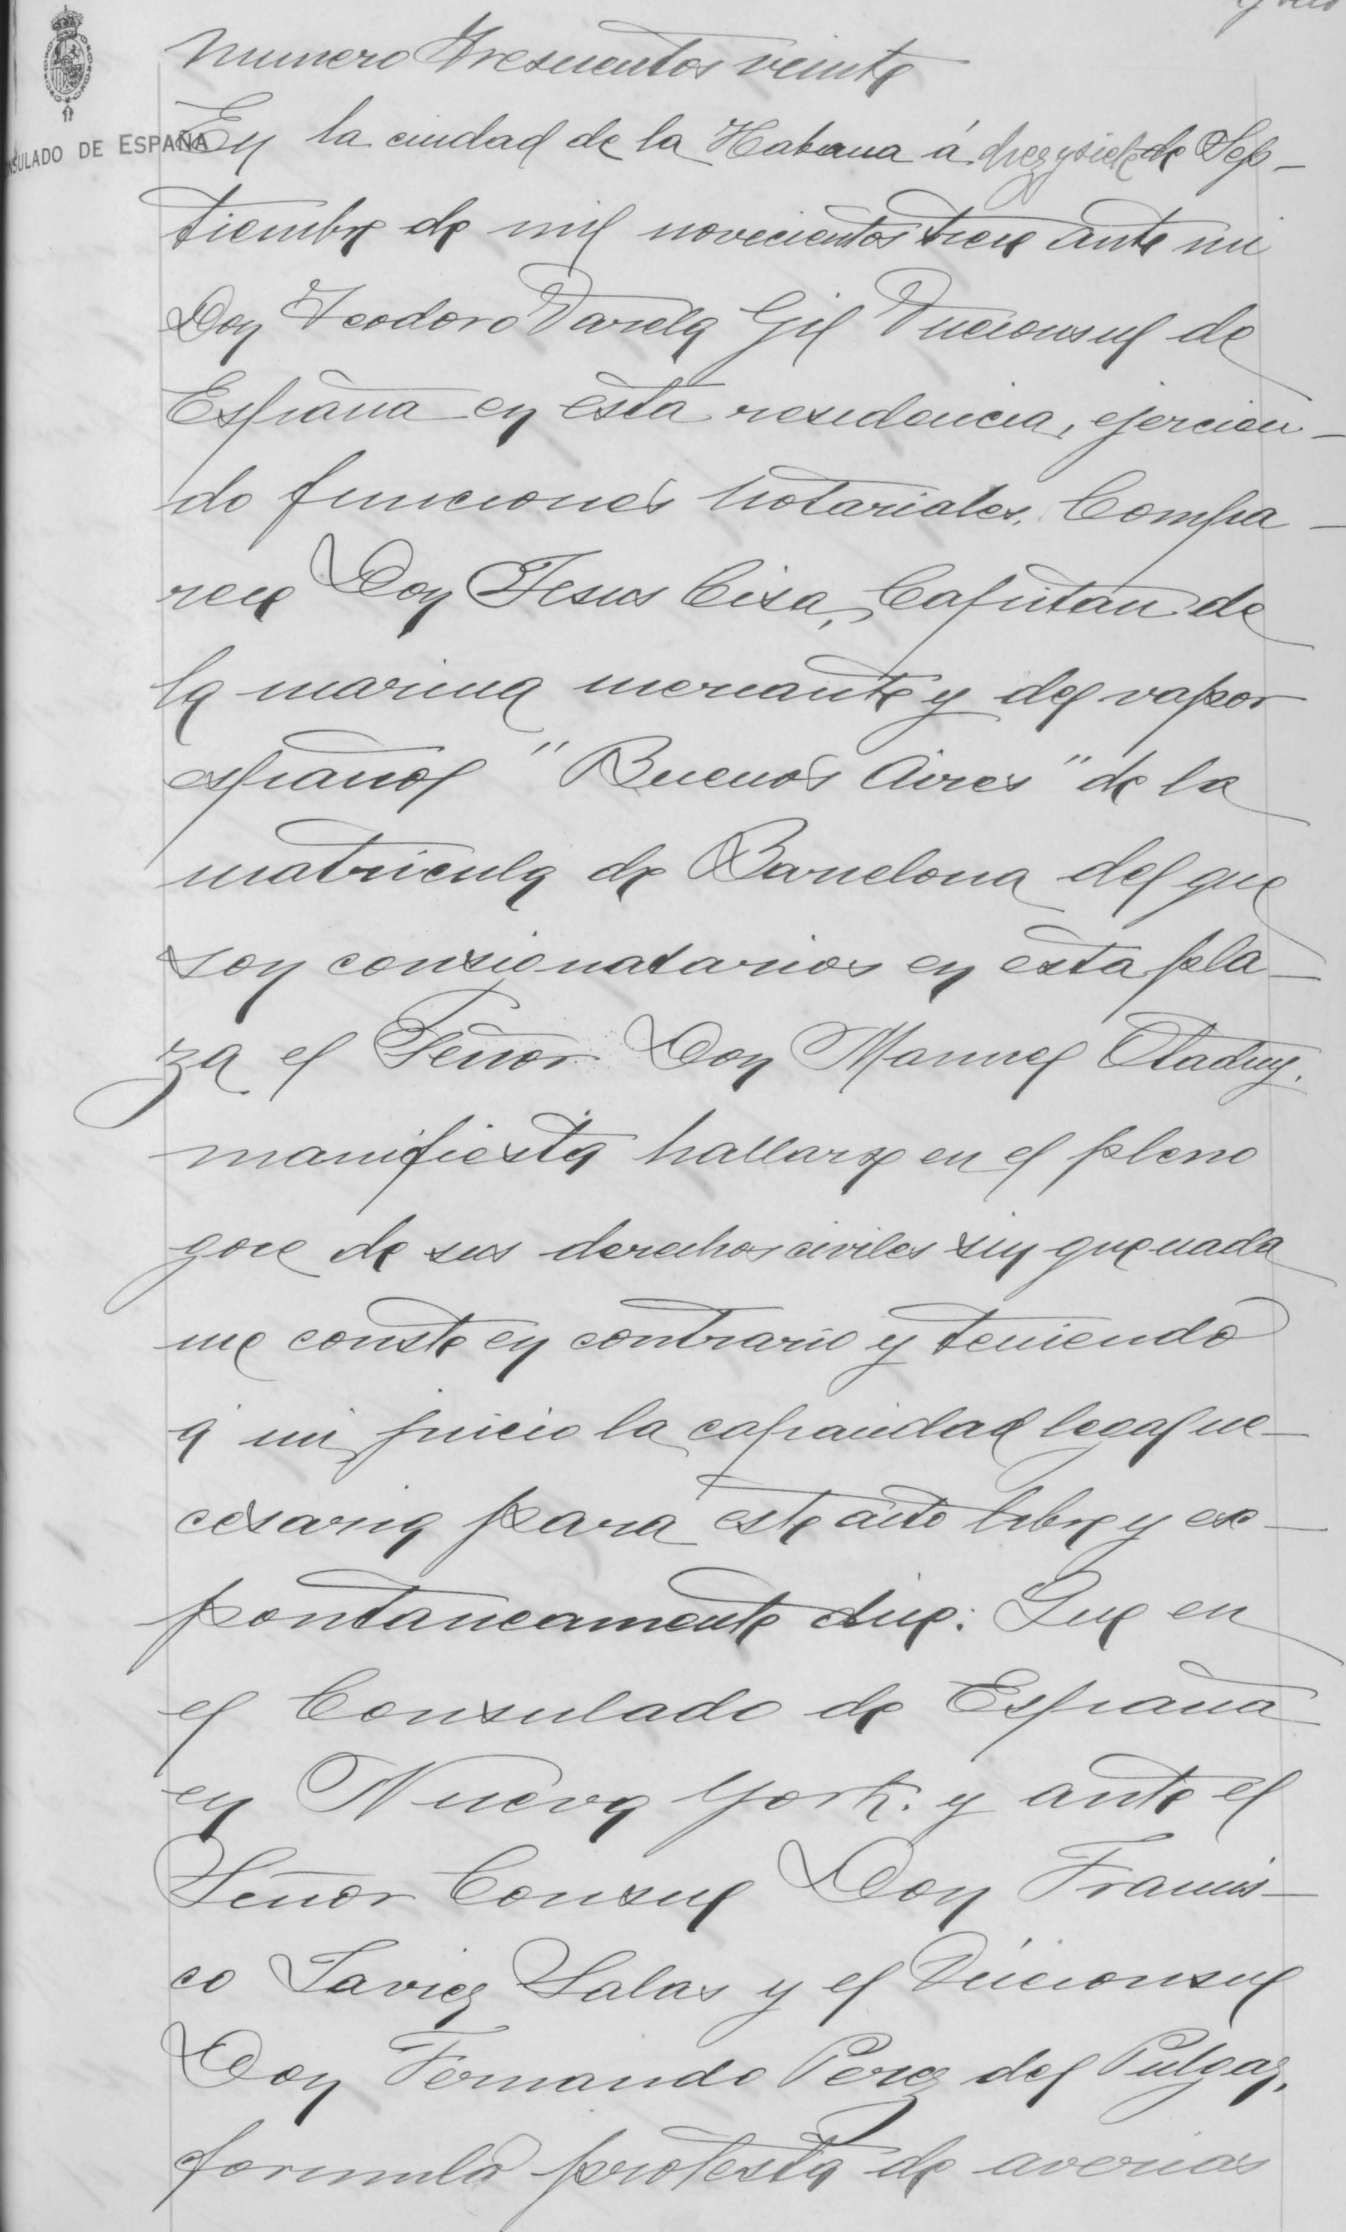 Numero Trescientos veinte
CONSULADO DE ESPAÑA
En la ciudad de la Habana á diez y siete de Sep-
tiembre de mil novecientos trece ante mi
Don Teodoro Varela Gil Vicecónsul de
España en esta residencia, ejercien-
do funciones notariales. Compa-
rece Don Jesus Cisa, Capitan de
la marina mercante y del vapor
español "Buenos Aires" de la
matricula de Barcelona del que
son consignatarios en esta pla-
za el Señor Don Manuel Otaduy.
manifiesta hallarse en el pleno
goce de sus derechos civiles sin que nada
me conste en contrario y teniendo
á mi juicio la capacidad legal ne-
cesaria para este acto libre y es-
pontaneamente dice: Que en
el Consulado de España
en Nueva York. y ante el
Señor Consul Don Francis-
co Javier Salas y el Vicecónsul
Don Fernando Perez del Pulgar,
formuló protesta de averias